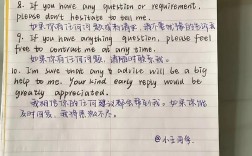 8. If you have any question or requirement,
please don't hesitate to tell me.
如果你有任何问题或有请求，请不要犹豫告诉我
9. If you have anything question, please feel
free to contract me at any time.
如果你有任何问题，请随时联系我。
10. I'm sure that any advice will be a big
help to me. Your kind early reply would be
greatly appreciated.
我相信你的任何建议都会帮到我。如果你能
及时回复，我将感激不尽。